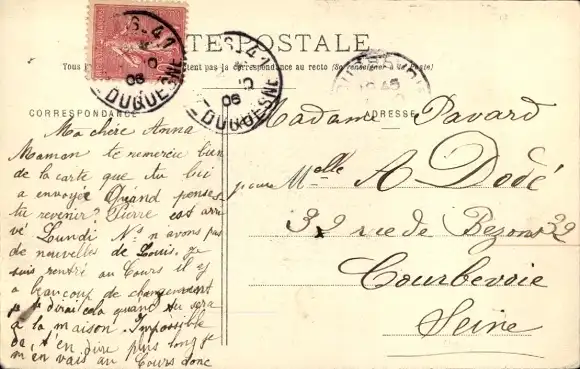 CARTE POSTALE
Tous les pays étrangers n'acceptent pas la correspondance au recto (Se renseigner à la Poste)
CORRESPONDANCE
ADRESSE
DUQUESNE
DUQUESNE
Ma chère Anna
Maman te remercie bien
de la carte que tu lui
a envoyée Quand penses
tu revenir? Pierre est arri
vé Lundi Ns n avons pas
de nouvelles de Louis. Je
suis rentré au Cours il y
a beaucoup de changement
je te dirai cela quand tu sera
à la maison. Impossible
de t'en dire plus long je
m'en vais au Cours donc
Madame Pavard
pour Melle A Dodé
32 rue de Bezons 32
Courbevoie
Seine